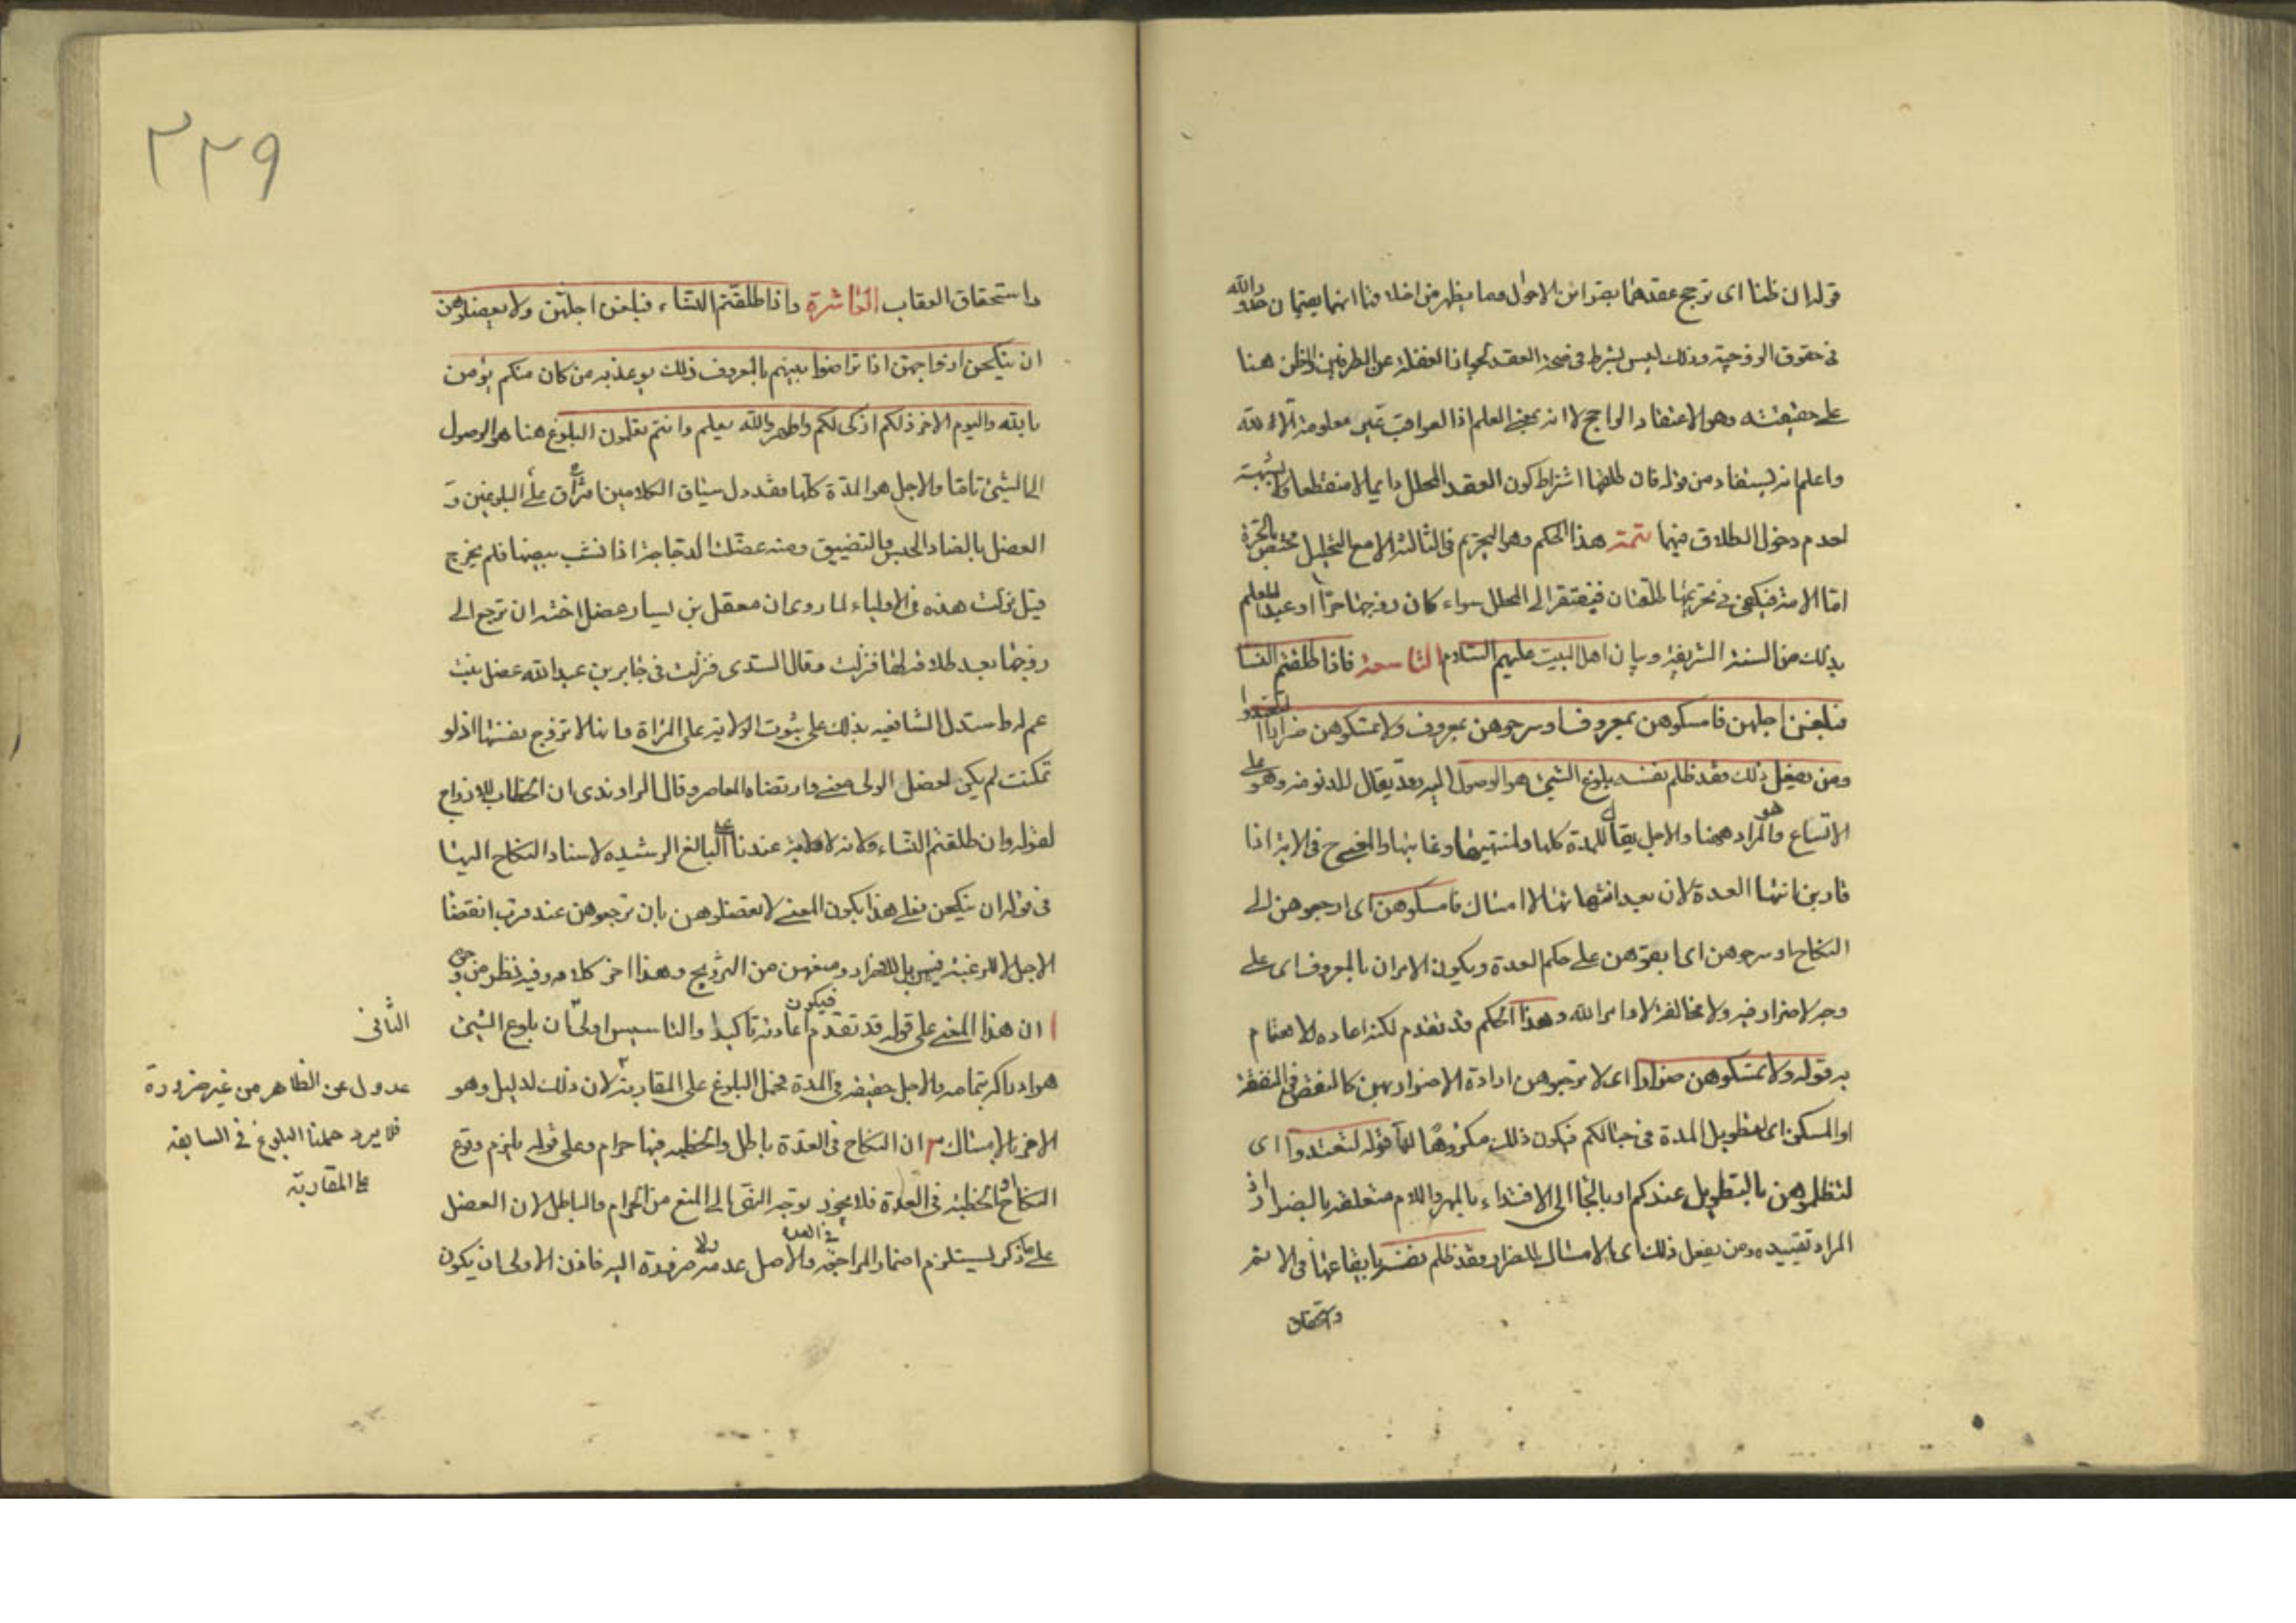 قوله ان ظنا اى ترجح عقدهما بقرائن الاحوال ومما يظهر من اخلاقنا انهما يقيمان حدود الله
فى حقوق الزوجية وذلك ليس بشرط فى صحة العقد لجواز الغفلة عن الطرفين والظن هنا
على حقيقته وهو الاعتقاد الراجح لا انه بمعنى العلم اذ العواقب غير معلومة الا لله
واعلم انه يستفاد من قوله فان طلقها اشتراط كون العقد المحلل دايما لا منقطعا ولا شبهة
لعدم دخول الطلاق فيهما تتمة هذا الحكم وهو التحريم فى الثالثة الا مع التحليل مختص بالحرة
امّا الامة فيكفى فى تحريمها طلقتان فيفتقر الى المحلل سواء كان زوجها حرّا او عبدا للعلم
بذلك من السنة الشريفة وبيان اهل البيت عليهم السّلام التاسعة فاذا طلقتم النسا
فبلغن اجلهن فامسكوهن بمعروف او سرحوهن بمعروف ولا تمسكوهن ضرارا لتعتدوا
ومن يفعل ذلك فقد ظلم نفسه بلوغ الشيئ هو الوصول اليه وقد يقال للدنو منه وهو على
الاتساع وهو المراد ههنا والاجل يقال للمدة كلها ولمنتهيها وغايتها والمعنى فى الاية اذا
قاربن انتها العدة لان بعد انتهائها لا امساك فامسكوهن اى ارجعوهن الى
النكاح او سرحوهن اى ابقوهن على حكم العدة ويكون الامران بالمعروف اى على
وجه لا ضرار فيه ولا مخالفة لاوامر الله وهذا الحكم قد تقدم لكنه اعاده للاهتمام
به قوله ولا تمسكوهن ضرارا اى لا ترجعوهن ارادة الاضرار بهن كالنقص فى النفقة
او المسكن اى لتطويل المدة فى حبالكم فيكون ذلك مكروها لها قوله لتعتدوا اى
لتظلموهن بالتطويل عندكم او بالجا الى الافتداء بالمهر واللام متعلقة بالضرار اذ
المراد تقييده ومن يفعل ذلك اى الامساك للضرار فقد ظلم نفسه بايقاعها فى الاثم
واستحقاق
٢٢٩
واستحقاق العقاب العاشرة واذا طلقتم النساء فبلغن اجلهن ولا تعضلوهن
ان ينكحن ازواجهن اذا تراضوا بينهم بالمعروف ذلك يوعظ به من كان منكم يؤمن
بالله واليوم الاخر ذلكم ازكى لكم واطهر والله يعلم وانتم تعلمون البلوغ هنا هو الوصول
الى الشيئ تامّا والاجل هو المدّة كلّها فقد دل سياق الكلامين على البلوغين و
العضل بالضاد الحبس والتضييق ومنه عضلت الدجاجة اذا نشب بيضها فلم يخرج
قيل نزلت هذه فى الاولياء لما روى ان معقل بن يسار عضل اخته ان ترجع الى
زوجها بعد طلاقه لها فنزلت وقال السّدى فنزلت فى جابر بن عبد الله عضل بنت
عم له واستدل الشافعيه بذلك على ثبوت الولاية على المرأة وانها لا تزوج نفسها اذ لو
تمكنت لم يكن لعضل الولى معنى وارتضاه المعاصر وقال الراوندى ان الخطاب للازواج
لقوله وان طلقتم النساء ولانه لا ولاية عندنا على البالغ الرشيده لاسناد النكاح اليها
فى قوله ان ينكحن فعلى هذا يكون المعنى لا تعضلوهن بان ترجعوهن عند قرب انقضا
الاجل لا للرغبة فيهن بل للاضرار ومنعهن من التزويج وهذا اخر كلامه وفيه نظر من وجوه
ا ان هذا المعنى على قوله قد تقدم فيكون اعادته تاكيدا والتاسيس اولى ان بلوغ الشيئ
هو ادراكه بتمامه والاجل حقيقه فى المدة فحمل البلوغ على المقاربة لان ذلك لدليل وهو
الامر بالامساك ان النكاح فى العدّة باطل والخطبه فيها حرام وعلى قوله يلزم وقوع
النكاح او الخطبة فى العدة فلا يجوز توجه النهى الى المنع من الحرام والباطل لان العضل
على ما ذكر يستلزم اضمار المراجعة فى العده والاصل عدمه ولا ضرورة اليه فاذن الاولى ان يكون
الثانى
عدول عن الظاهر من غير ضرورة
فلا يرد حملنا البلوغ فى السابقه
على المقاربة